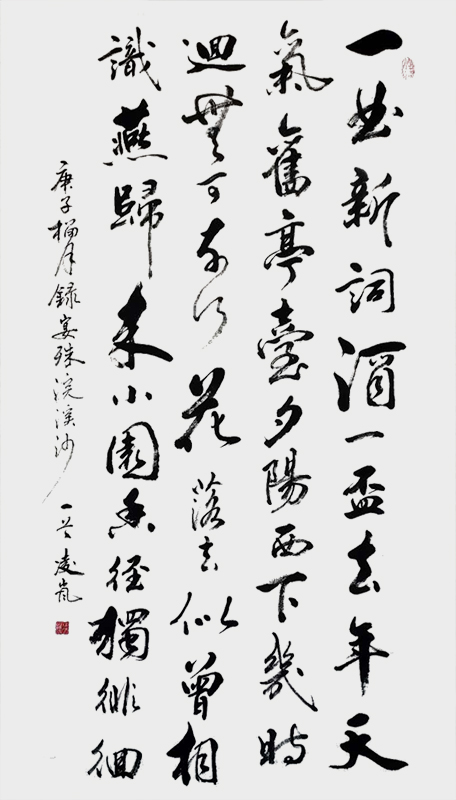 一曲新詞酒一盃去年天
氣舊亭臺夕陽西下幾時
迴無可奈何花落去似曾相
識燕歸來小園香徑獨徘徊
庚子榴月録宴殊浣溪沙 凌岚